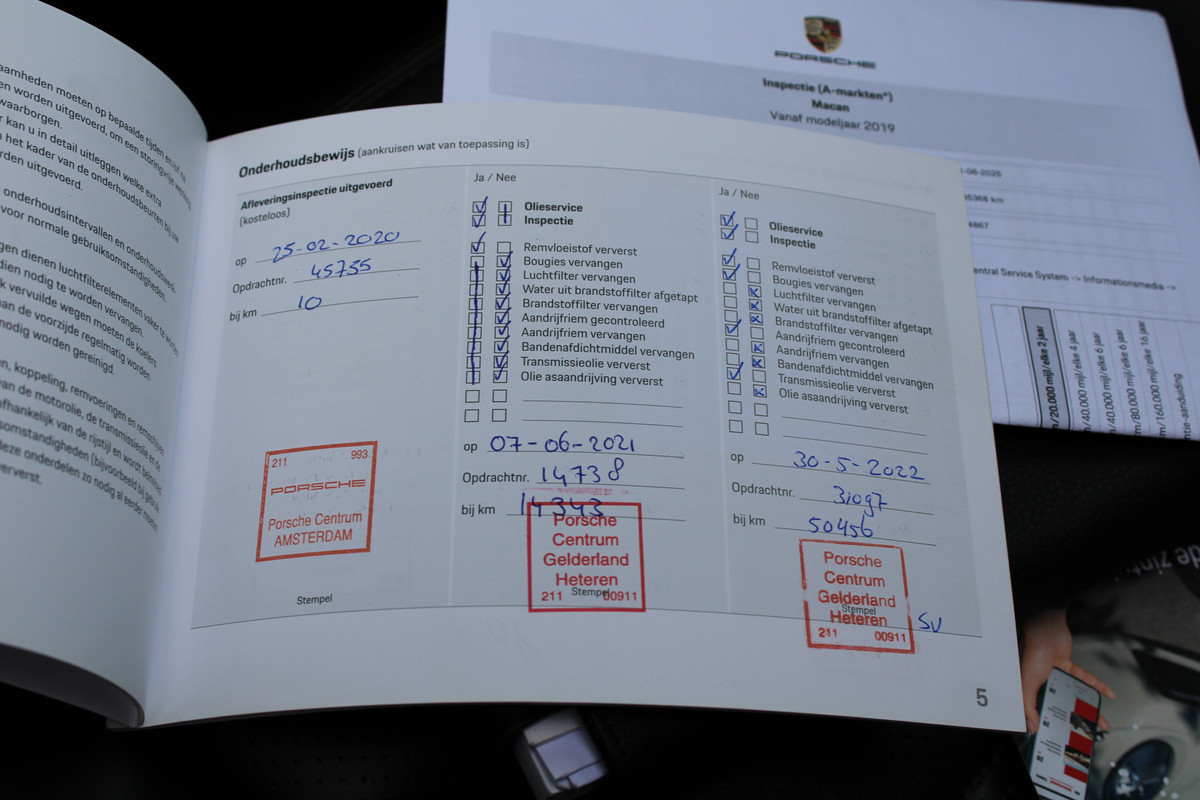 aamheden moeten op bepaalde tijden en/of na
en worden uitgevoerd, om een storingvrije werking
waarborgen.
r kan u in detail uitleggen welke extra
n het kader van de onderhoudsbeurten bij uw
rden uitgevoerd.
onderhoudsintervallen en onderhoudswerk-
voor normale gebruiksomstandigheden.
gen dienen luchtfilterelementen vaker te worden
dien nodig te worden vervangen.
k vervuilde wegen moeten de koelers
aan de voorzijde regelmatig worden
nodig worden gereinigd.
en, koppeling, remvoeringen en remschijven
van de motorolie, de transmissieolie en de
afhankelijk van de rijstijl en wordt beïnvloed
somstandigheden (bijvoorbeeld bij gebruik
deze onderdelen zo nodig al eerder moeten
ververst.
Onderhoudsbewijs (aankruisen wat van toepassing is)
Afleveringsinspectie uitgevoerd
(kosteloos)
op 25-02-2020
Opdrachtnr. 45755
bij km 10
211 993
PORSCHE
Porsche Centrum
AMSTERDAM
Stempel
Ja / Nee
Olieservice
Inspectie
Remvloeistof ververst
Bougies vervangen
Luchtfilter vervangen
Water uit brandstoffilter afgetapt
Brandstoffilter vervangen
Aandrijfriem gecontroleerd
Aandrijfriem vervangen
Bandenafdichtmiddel vervangen
Transmissieolie ververst
Olie asaandrijving ververst
op 07-06-2021
Opdrachtnr. 14738
bij km 14343
Porsche
Centrum
Gelderland
Heteren
Stempel
211 00911
Ja / Nee
Olieservice
Inspectie
Remvloeistof ververst
Bougies vervangen
Luchtfilter vervangen
Water uit brandstoffilter afgetapt
Brandstoffilter vervangen
Aandrijfriem gecontroleerd
Aandrijfriem vervangen
Bandenafdichtmiddel vervangen
Transmissieolie ververst
Olie asaandrijving ververst
op 30-5-2022
Opdrachtnr. 31097
bij km 50456
Porsche
Centrum
Gelderland
Stempel
Heteren
211 00911
SV
5
PORSCHE
Inspectie (A-markten*)
Macan
Vanaf modeljaar 2019
-06-2025
5368 km
4867
entral Service System -> Informationsmedia ->
m/20.000 mijl/elke 2 jaar
m/40.000 mijl/elke 4 jaar
m/40.000 mijl/elke 6 jaar
m/80.000 mijl/elke 6 jaar
m/160.000 mijl/elke 16 jaar
ntie-aanduiding
de zintu